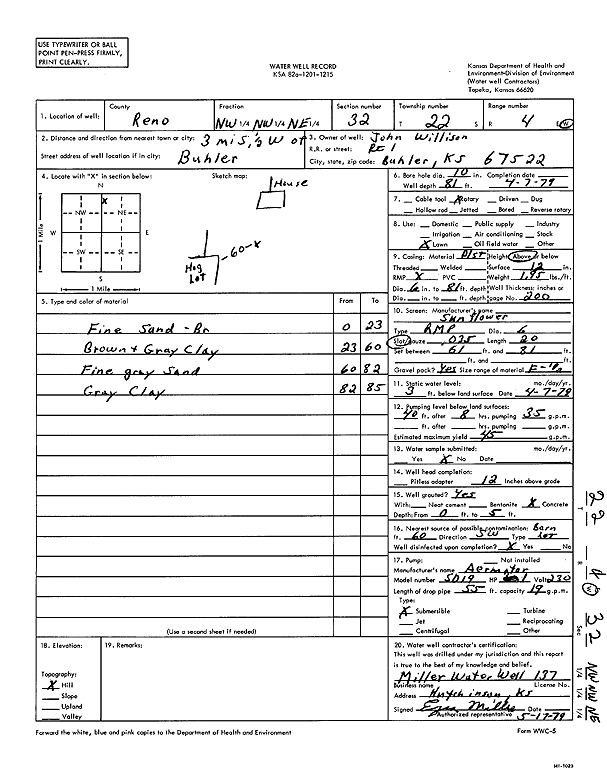 USE TYPEWRITER OR BALL
POINT PEN-PRESS FIRMLY,
PRINT CLEARLY.
WATER WELL RECORD
KSA 82a-1201-1215
Kansas Department of Health and
Environment-Division of Environment
(Water well Contractors)
Topeka, Kansas 66620
1. Location of well: County Reno Fraction NW 1/4 NW 1/4 NE 1/4 Section number 32 Township number T 22 S Range number R 4 E/W
2. Distance and direction from nearest town or city: 3 mi S, ½ W of
Street address of well location if in city: Buhler
3. Owner of well: John Willison
R.R. or street: Rt 1
City, state, zip code: Buhler, KS 67522
4. Locate with "X" in section below:
Sketch map:
N
X
NW NE
W E
SW SE
S
1 Mile
1 Mile
House
60-x
Hog
Lot
5. Type and color of material From To
Fine Sand - Br 0 23
Brown & Gray Clay 23 60
Fine gray Sand 60 82
Gray Clay 82 85
(Use a second sheet if needed)
6. Bore hole dia. 10 in. Completion date
Well depth 81 ft. 4-7-79
7. Cable tool X Rotary Driven Dug
Hollow rod Jetted Bored Reverse rotary
8. Use: Domestic Public supply Industry
Irrigation Air conditioning Stock
X Lawn Oil field water Other
9. Casing: Material Plst Height: Above or below
Threaded Welded Surface 12 in.
RMP X PVC Weight 1.95 lbs./ft.
Dia. 6 in. to 81 ft. depth Wall Thickness: inches or
Dia. in. to ft. depth gage No. 200
10. Screen: Manufacturer's name
Sunflower
Type RMP Dia. 6
Slot/gauze .025 Length 20
Set between 61 ft. and 81 ft.
ft. and ft.
Gravel pack? Yes Size range of material
11. Static water level: mo./day/yr.
3 ft. below land surface Date 4-7-79
12. Pumping level below land surfaces:
40 ft. after 8 hrs. pumping 35 g.p.m.
ft. after hrs. pumping g.p.m.
Estimated maximum yield 45 g.p.m.
13. Water sample submitted: mo./day/yr.
Yes X No Date
14. Well head completion:
Pitless adapter 12 Inches above grade
15. Well grouted? Yes
With: Neat cement Bentonite X Concrete
Depth: From 0 ft. to 5 ft.
16. Nearest source of possible contamination: Barn
ft. 60 Direction SW Type Lot
Well disinfected upon completion? X Yes No
17. Pump: Not installed
Manufacturer's name Aermotor
Model number SD19 HP 1 Volts 230
Length of drop pipe 55 ft. capacity 19 g.p.m.
Type:
X Submersible Turbine
Jet Reciprocating
Centrifugal Other
18. Elevation:
Topography:
X Hill
Slope
Upland
Valley
19. Remarks:
20. Water well contractor's certification:
This well was drilled under my jurisdiction and this report
is true to the best of my knowledge and belief.
Miller Water Well 137
Business name License No.
Address Hutchinson, KS
Signed Miller 5-17-79
Authorized representative
Forward the white, blue and pink copies to the Department of Health and Environment
Form WWC-5
22 T
4 W R
32 Sec
NW NW NE
1/4 1/4 1/4